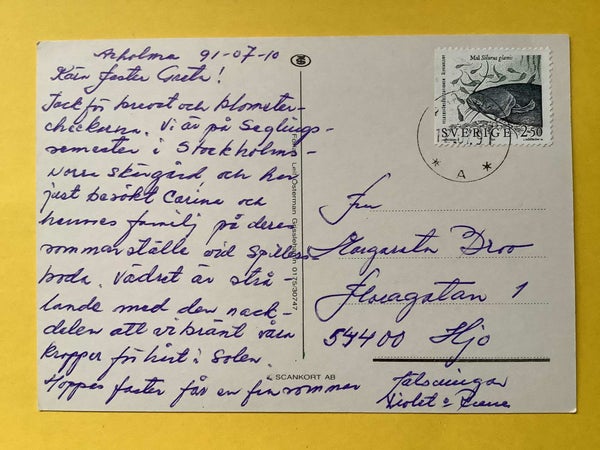 Arholma 91-07-10
Kära faster Greta!
Tack för brevet och blomster-
checkarna. Vi är på Seglings-
semester i Stockholms
norra skärgård och har
just besökt Carina och
hennes familj på deras
sommarställe vid Spillers-
boda. Vädret är strå
lande med den nack-
delen att vi bränt våra
kroppar för hårt i Solen.
Hoppas faster får en fin sommar
Hälsningar
Foto: Leif Österman Grisslehamn 0175-30747
SCANKORT AB
Mal Silurus glanis
SVERIGE 2·50
* A *
Fru
Margareta Droo
Floragatan 1
54400 Hjo